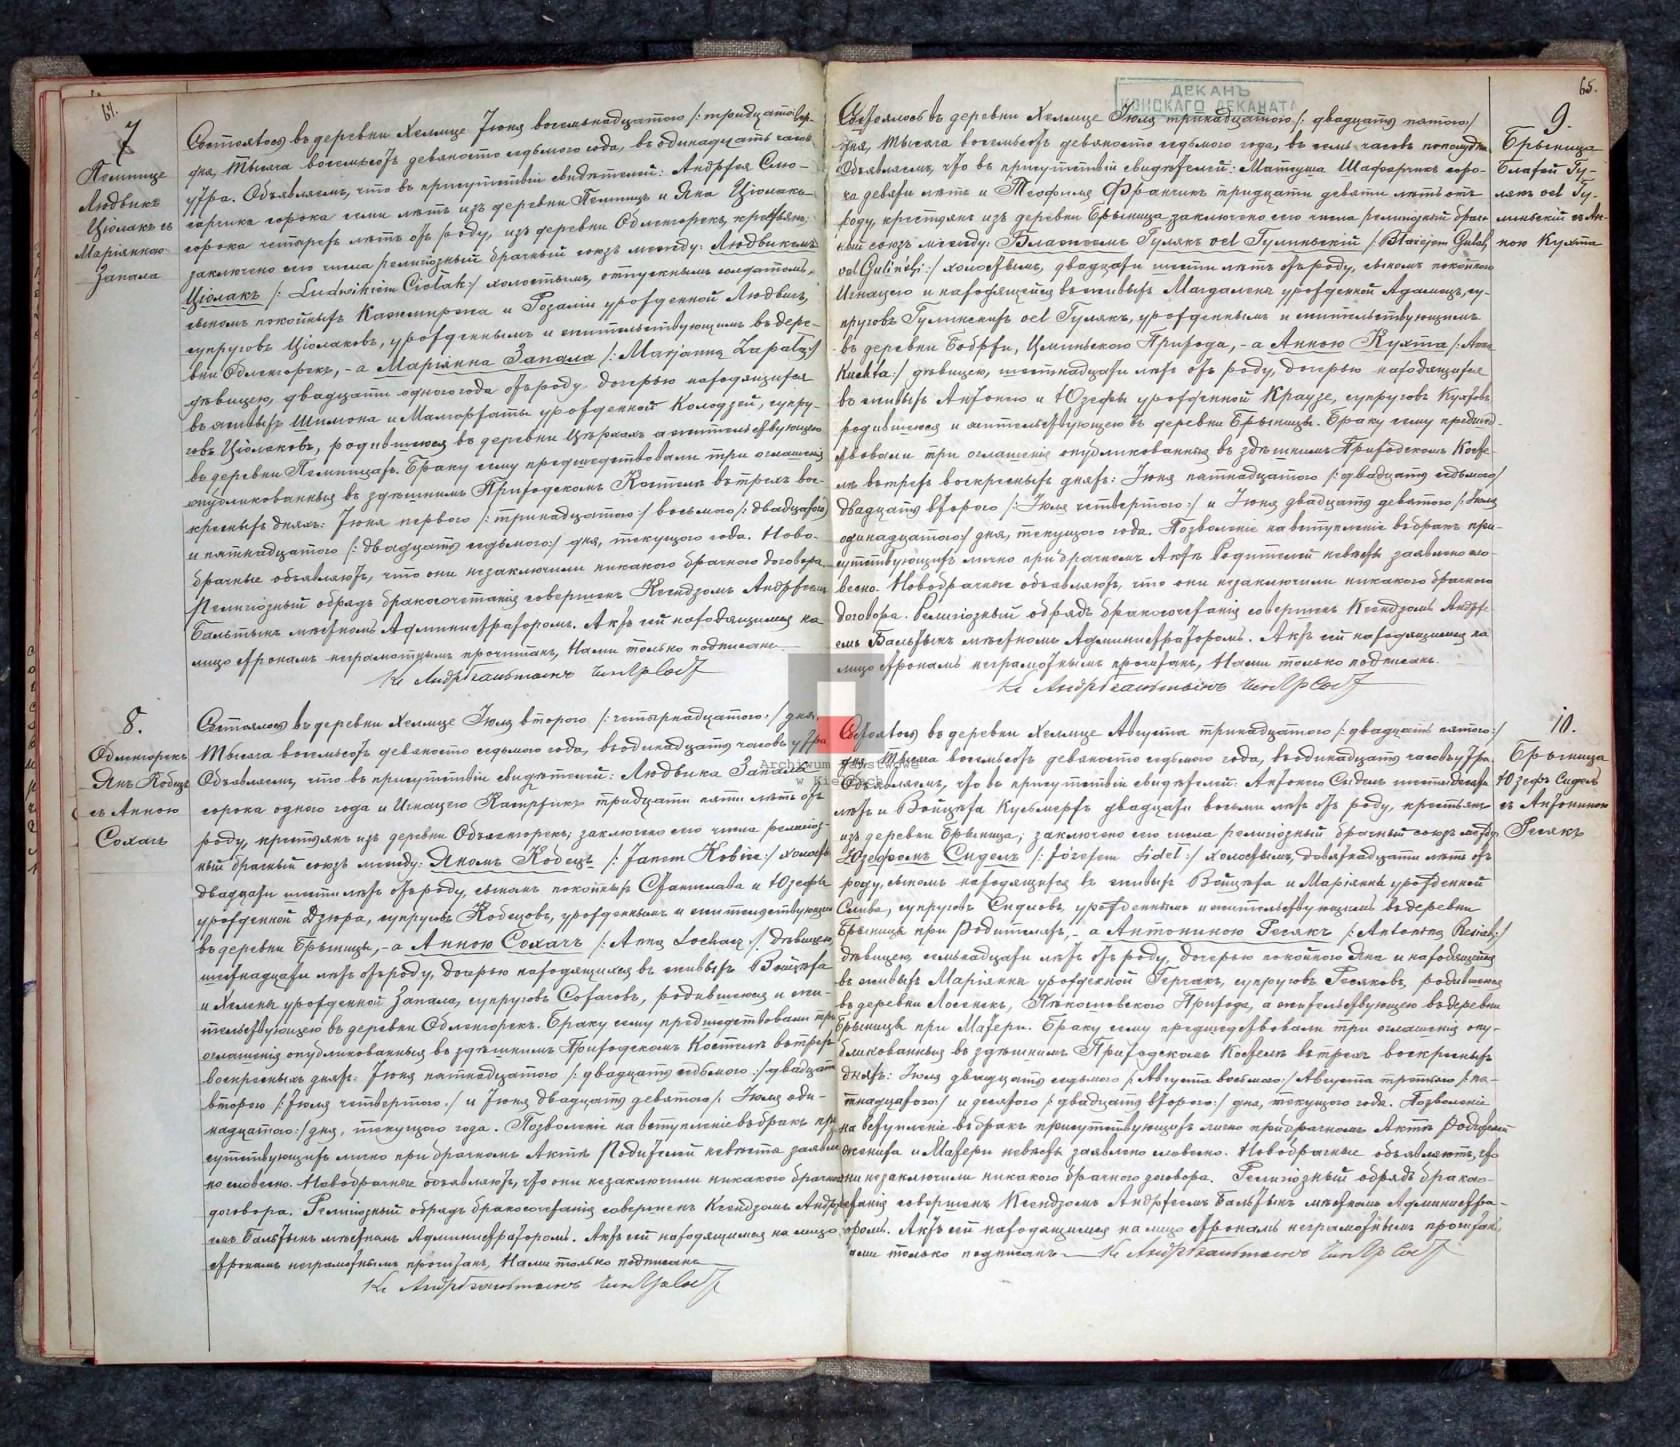 64.
7
Пемпице
Людвикъ
Ціолакъ съ
Маріянною
Запала
Состоялось въ деревни Хелмце Іюня восемьнадцатого /: тридцатого
дня, тысяча восемьсотъ девяносто седьмого года, въ одинадцать часовъ
утра. Объявляемъ, что въ присутствіи свидѣтелей: Андрѣя
сорока семи лѣтъ изъ деревни Пемпицъ и Яна Ціолакъ
сорока четырехъ лѣтъ отъ роду, изъ деревни Одлегорекъ, крестьянъ;
заключено сего числа религіозный брачный союзъ между: Людвикомъ
Ціолакъ /: Ludwikiem Ciołak :/ холостымъ, отпускнымъ солдатомъ,
сыномъ покойныхъ Казимірога и Розаліи урожденной Людвигъ,
супруговъ Ціолаковъ, урожденнымъ и жительствующимъ въ дере-
вни Одлегорекъ, - а Маріянна Запала /: Marjanną Zapałą :/
дѣвицею, двадцати одного года отъ роду дочерью находящихся
въ живыхъ Шимона и Малгоржаты урожденной Колодзей, супру-
говъ Ціолаковъ, родившеюся въ деревни а жительствующею
въ деревни Пемпицахъ. Браку сему предшедствовали три оглашенія
опубликованныя въ здѣшнимъ Приходскомъ Костелѣ въ трехъ вос-
кресныхъ дняхъ: Іюня первого /: тринадцатого :/ восьмого /: двадцатого :/
и пятнадцатого /: двадцать седьмого :/ дня, текущого года. Ново-
брачные объявляютъ, что они незаключили никакого брачного договора.
Религіозный обрядъ бракосочетанія совершенъ Ксендзомъ Андрѣемъ
Бальтынъ мѣстномъ Администраторомъ. Актъ сей находящимся на
лицо сторонамъ неграмотнымъ прочитанъ, Нами только подписанъ.
8.
Одлегорекъ
Янъ Кобецъ
съ Анною
Сохачъ
Состоялось въ деревни Хелмце Іюля второго /: четырнадцатого :/ дня,
тысяча восемьсотъ девяносто седьмого года, въ одинадцать часовъ утра
Объявляемъ, что въ присутствіи свидѣтелей: Людвика Запала
сорока одного года и Игнацего тридцати пяти лѣтъ отъ
роду, крестьянъ изъ деревни Одлегорекъ; заключено сего числа религіоз-
ный брачный союзъ между: Яномъ Кобецъ /: Janem Kobiec :/ холостымъ
двадцати шести лѣтъ отъ роду, сыномъ покойныхъ Станислава и Юзефы
урожденной Дзюра, супруговъ Кобецовъ, урожденнымъ и жительствующимъ
въ деревни Брыницы, - а Анною Сохачъ /: Anną Sochacz :/ дѣвицею,
шестнадцати лѣтъ отъ роду, дочерью находящихся въ живыхъ Войцѣха
и урожденной Запала, супруговъ Сохачовъ, родившеюся и жи-
тельствующею въ деревни Одлегорекъ. Браку сему предшедствовали три
оглашенія опубликованныя въ здѣшнимъ Приходскомъ Костелѣ въ трехъ
воскресныхъ дняхъ: Іюня пятнадцатого /: двадцать седьмого :/ двадцать
второго /: Іюля четвертого :/ и Іюня двадцать девятого /: Іюля оди-
надцатого :/ дня, текущого года. Позволеніе на вступленіе въ бракъ при
сутствующихъ лично при брачномъ Актѣ Родителей невѣсты заявле
но словесно. Новобрачные объявляютъ, что они незаключили никакого брачного
договора. Религіозный обрядъ бракосочетанія совершенъ Ксендзомъ Андрѣ
емъ Бальтынъ мѣстномъ Администраторомъ. Актъ сей находящимся на лицо
сторонамъ неграмотнымъ прочитанъ, Нами только подписанъ
65.
ДЕКАНЪ
КОНСКАГО ДЕКАНАТА
9.
Брыница
Блажей Гу-
лякъ vel Гу-
линьскій съ Ан-
ною Кухта
Состоялось въ деревни Хелмце Іюля тринадцатого /: двадцать пятого :/
дня, тысяча восемьсотъ девяносто седьмого года, въ семь часовъ пополудни
Объявляемъ, что въ присутствіи свидѣтелей: Матеуша соро-
ка девяти лѣтъ и Теофиля Францикъ тридцати девяти лѣтъ отъ
роду, крестьянъ изъ деревни Брыница заключено сего числа религіозный брач-
ный союзъ между: Блажеемъ Гулякъ vel Гулиньскій /: Błażejem Gulak
vel Guliński :/ холостымъ, двадцати шести лѣтъ отъ роду, сыномъ покойного
Игнацего и находящейся въ живыхъ Магдалены урожденной Адамецъ, су-
пруговъ Гулинскихъ vel Гулякъ, урожденнымъ и жительствующимъ
въ деревни Бобржи, Цминьского Прихода, - а Анною Кухта /: Anną
Kuchta :/ дѣвицею, шестнадцати лѣтъ отъ роду, дочерью находящихся
въ живыхъ Антонего и Юзефы урожденной Краузе, супруговъ Кухтовъ
родившеюся и жительствующею въ деревни Брыницы. Браку сему предшед-
ствовали три оглашенія опубликованныя въ здѣшнимъ Приходскомъ Косте-
лѣ въ трехъ воскресныхъ дняхъ: Іюня пятнадцатого /: двадцать седьмого :/
двадцать второго /: Іюля четвертого :/ и Іюня двадцать девятого /: Іюля
одинадцатого :/ дня, текущого года. Позволеніе на вступленіе въ бракъ при-
сутствующихъ лично при брачномъ Актѣ Родителей невѣсты заявлено сло-
весно. Новобрачные объявляютъ, что они незаключили никакого брачного
договора. Религіозный обрядъ бракосочетанія совершенъ Ксендзомъ Андрѣ-
емъ Бальтынъ мѣстномъ Администраторомъ. Актъ сей находящимся на
лицо сторонамъ неграмотнымъ прочитанъ, Нами только подписанъ.
10.
Брыница
Юзефъ Сидель
съ Антониною
Ресякъ
Состоялось въ деревни Хелмце Августа тринадцатого /: двадцать пятого :/
дня, тысяча восемьсотъ девяносто седьмого года, въ одинадцать часовъ утра,
Объявляемъ, что въ присутствіи свидѣтелей: Антонего Сидель шестидесяти
лѣтъ и Войцѣха двадцати восьми лѣтъ отъ роду, крестьянъ
изъ деревни Брыница; заключено сего числа религіозный брачный союзъ между
Юзефомъ Сидель /: Józefem Sideł :/ холостымъ, девятнадцати лѣтъ отъ
роду, сыномъ находящихся въ живыхъ Войцѣха и Маріянны урожденной
Слива, супруговъ Сидловъ, урожденнымъ и жительствующимъ въ деревни
Брыница при Родителяхъ, - а Антониною Ресякъ /: Antoniną Resiak :/
дѣвицею, семьнадцати лѣтъ отъ роду, дочерью покойного Яна и находящейся
въ живыхъ Маріянны урожденной супруговъ Ресяковъ, родившеюся
въ деревни Лосенекъ, Прихода, а жительствующею въ деревни
Брыницы при Матери. Браку сему предшедствовали три оглашенія опу-
бликованныя въ здѣшнимъ Приходскомъ Костелѣ въ трехъ воскресныхъ
дняхъ: Іюля двадцать седьмого /: Августа восьмого :/ Августа третьего /: пя-
тнадцатого :/ и десятого /: двадцать второго :/ дня, текущого года. Позволеніе
на вступленіе въ бракъ присутствующихъ лично при брачномъ Актѣ Родителей
жениха и Матери невѣсты заявлено словесно. Новобрачные объявляютъ, что
они незаключили никакого брачного договора. Религіозный обрядъ бракосо-
четанія совершенъ Ксендзомъ Андрѣемъ Бальтынъ мѣстномъ Администра-
торомъ. Актъ сей находящимся на лицо сторонамъ неграмотнымъ прочитанъ,
Нами только подписанъ
Archiwum Państwowe
w Kielcach